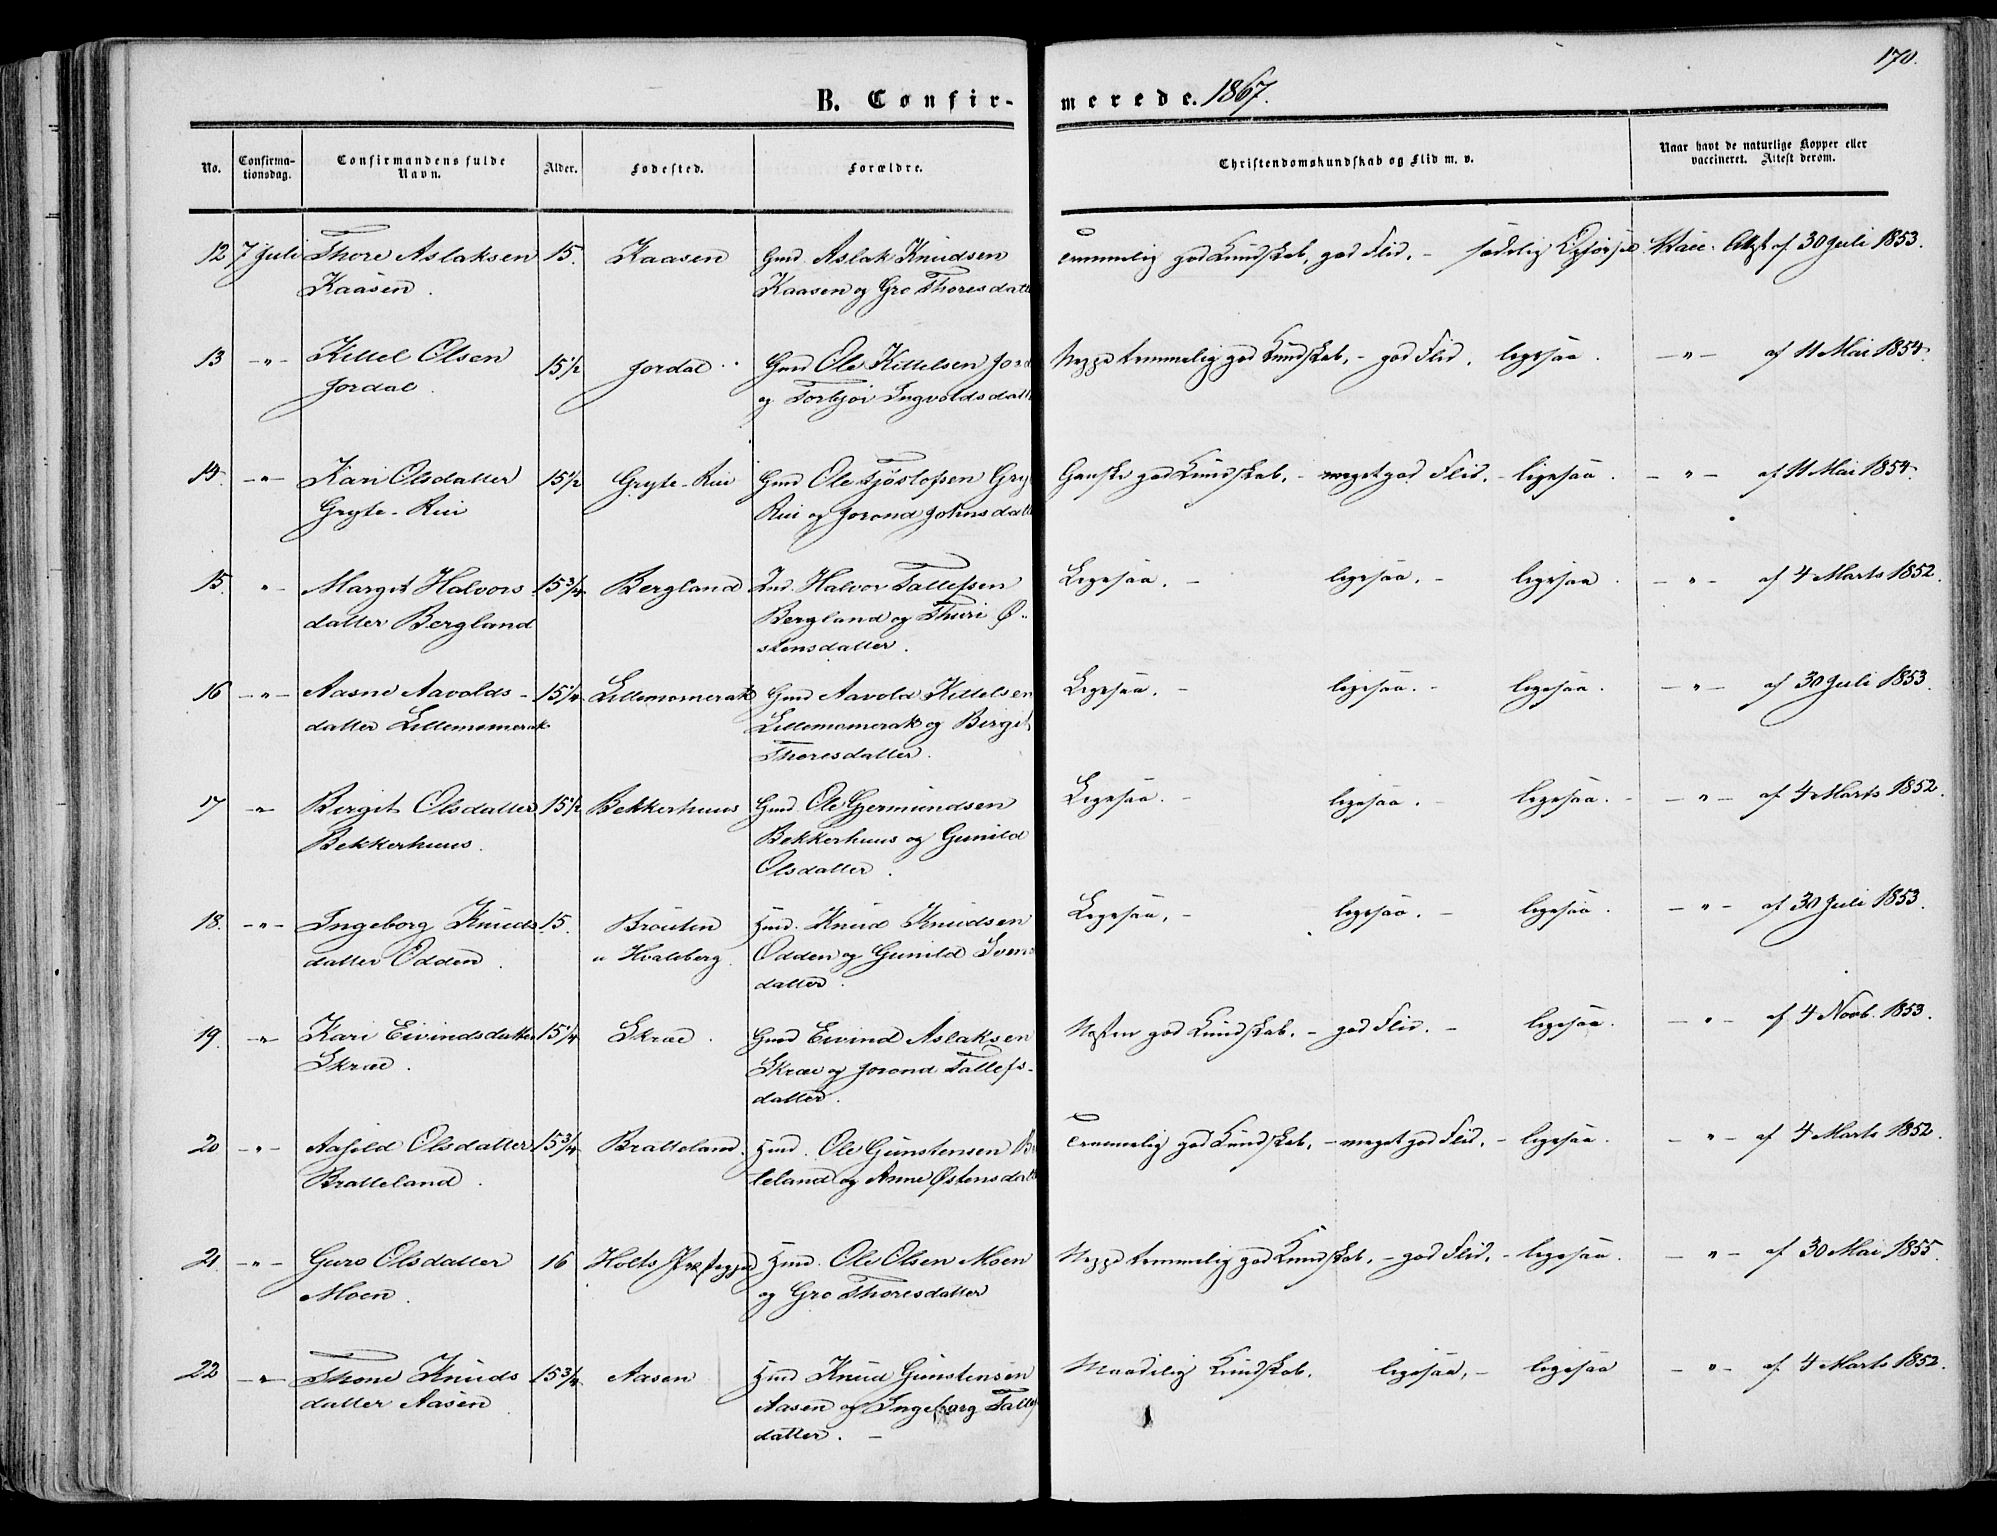 170.
B. Confir-
merede. 1867.
No.
Confirma-
tionsdag.
Confirmandens fulde
Navn.
Alder.
Fødested.
Forældre.
Christendomskundskab og Flid m. v.
Naar havt de naturlige Kopper eller
vaccineret. Attest derom.
12 7 Juli Thore Aslaksen 15. Kaasen Gmd. Aslak Knudsen Temmelig god Kundskab, god Flid. - sædelig Opførsel. Vacc. Attst af 30 Juli 1853.
Kaasen. Kaasen og Gro Thoresdatt
13 -"- Kittel Olsen 15½ Jordal. Gmd Ole Kittelsen Jord Neppe temmelig god Kundskab, - god Flid. ligesaa. -"- af 11 Mai 1854.
Jordal. og Torbjør Ingvoldsdatt
14. -"- Kari Olsdatter 15½ Gryte-Rui Gmd Ole Tjøstolfsen Gry Ganske god Kundskab, - meget god Flid, - ligesaa. -"- af 11 Mai 1854.
Gryte-Rui Rui og Jorond Johnsdatt
15. " - Margit Halvors 15¾ Bergland Ind. Halvor Tallefsen Ligesaa. - ligesaa. - ligesaa. -"- af 4 Marts 1852.
datter Bergland Bergland og Thuri Ø-
stensdatter.
16 -"- Aasne Aavolds- 15¼ Lillemomerak Gmd Aavold Kittelsen Ligesaa. - ligesaa. - ligesaa. -"- af 30 Juli 1853.
datter Lillemomerak Lillemomerak og Birgit
Thoresdatter.
17 " Birgit Olsdatter 15½ Bekkerhuus Gmd. Ole Gjermundsen Ligesaa. - ligesaa. - ligesaa. - -"- af 4 Marts 1852.
Bekkerhuus. Bekkerhuus og Gunild
Olsdatter.
18. -"- Ingeborg Knuds 15. Brouten Hmd. Knud Knudsen Ligesaa, - ligesaa. - ligesaa. -"- af 30 Juli 1853.
datter Odden. u Hvaleberg. Odden og Gunild Svens
datter.
19. -"- Kari Eivindsdatter 15¼ Skræ. Gmd Eivind Aslaksen Næsten god Kundskab. - god Flid. - ligesaa. -"- af 4 Novb. 1853.
Skræ. Skræ og Jorond Tallefs-
datter.
20 -"- Aasild Olsdatter 15¾ Bratteland. Hmd. Ole Gunstensen Br Temmelig god Kundskab, - meget god Flid, - ligesaa. -"- af 4 Marts 1852.
Bratteland. teland og Anne Østensdatt
21 -"- Guro Olsdatter 16 Holts Præstegjed Hmd. Ole Olsen Moen Neppe temmelig god Kundskab, - god Flid, - ligesaa. -"- af 30 Mai 1855.
Moen. og Gro Thoresdatter
22 -"- Thone Knuds 15¾ Aasen Hmd Knud Gunstensen Maadelig Kundskab. ligesaa, - ligesaa -"- af 4 Marts 1852.
datter Aasen Aasen og Ingeborg Tallefs
datter. -